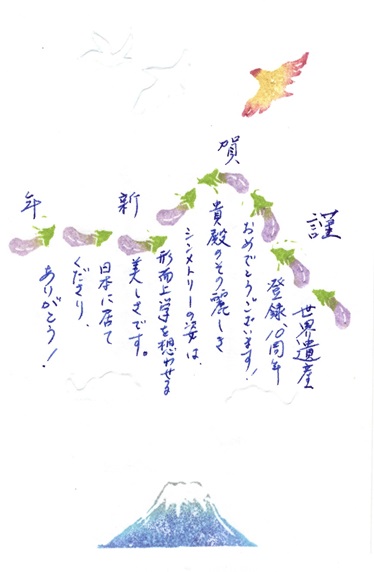 謹賀新年
世界遺産
登録10周年
おめでとうございます!
貴殿のその麗しき
シンメトリーの姿は、
形而上学を想わせる
美しさです。
日本に居て
くださり、
ありがとう!